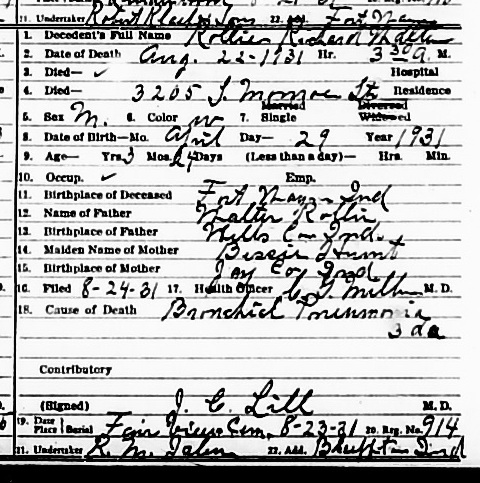 21. Undertaker Robert Klaehn & Sons 22. Add. Fort Wayne
1. Decedent's Full Name Rollie Richard Walter
2. Date of Death Aug. 22-1931 Hr. 3 30 A. M.
3. Died— ✓ Hospital
4. Died— 3205 S. Monroe St. Residence
5. Sex M. 6. Color W 7. Single Married Widowed Divorced
8. Date of Birth—Mo. April Day— 29 Year 1931
9. Age— Yrs. 3 Mos. 24 Days (Less than a day)— Hrs. Min.
10. Occup. ✓ Emp.
11. Birthplace of Deceased Fort Wayne Ind
12. Name of Father Walter Rollie
13. Birthplace of Father Wells Co. Ind.
14. Maiden Name of Mother Bessie
15. Birthplace of Mother Jay Co. Ind
16. Filed 8-24-31 17. Health Officer M. D.
18. Cause of Death Bronchial Pneumonia
3 da
Contributory
(Signed) J. C. Lill M. D.
19. Date Place Burial Fair View Cem. 8-23-31 20. Reg. No. 914
21. Undertaker R. M. 22. Add. Bluffton Ind